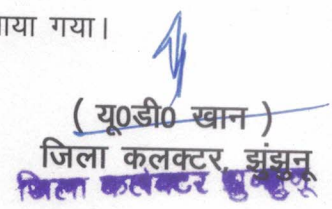 ाया गया।
( यू0डी0 खान )
जिला कलक्टर, झुंझुनू
जिला कलेक्टर झुन्झुनू